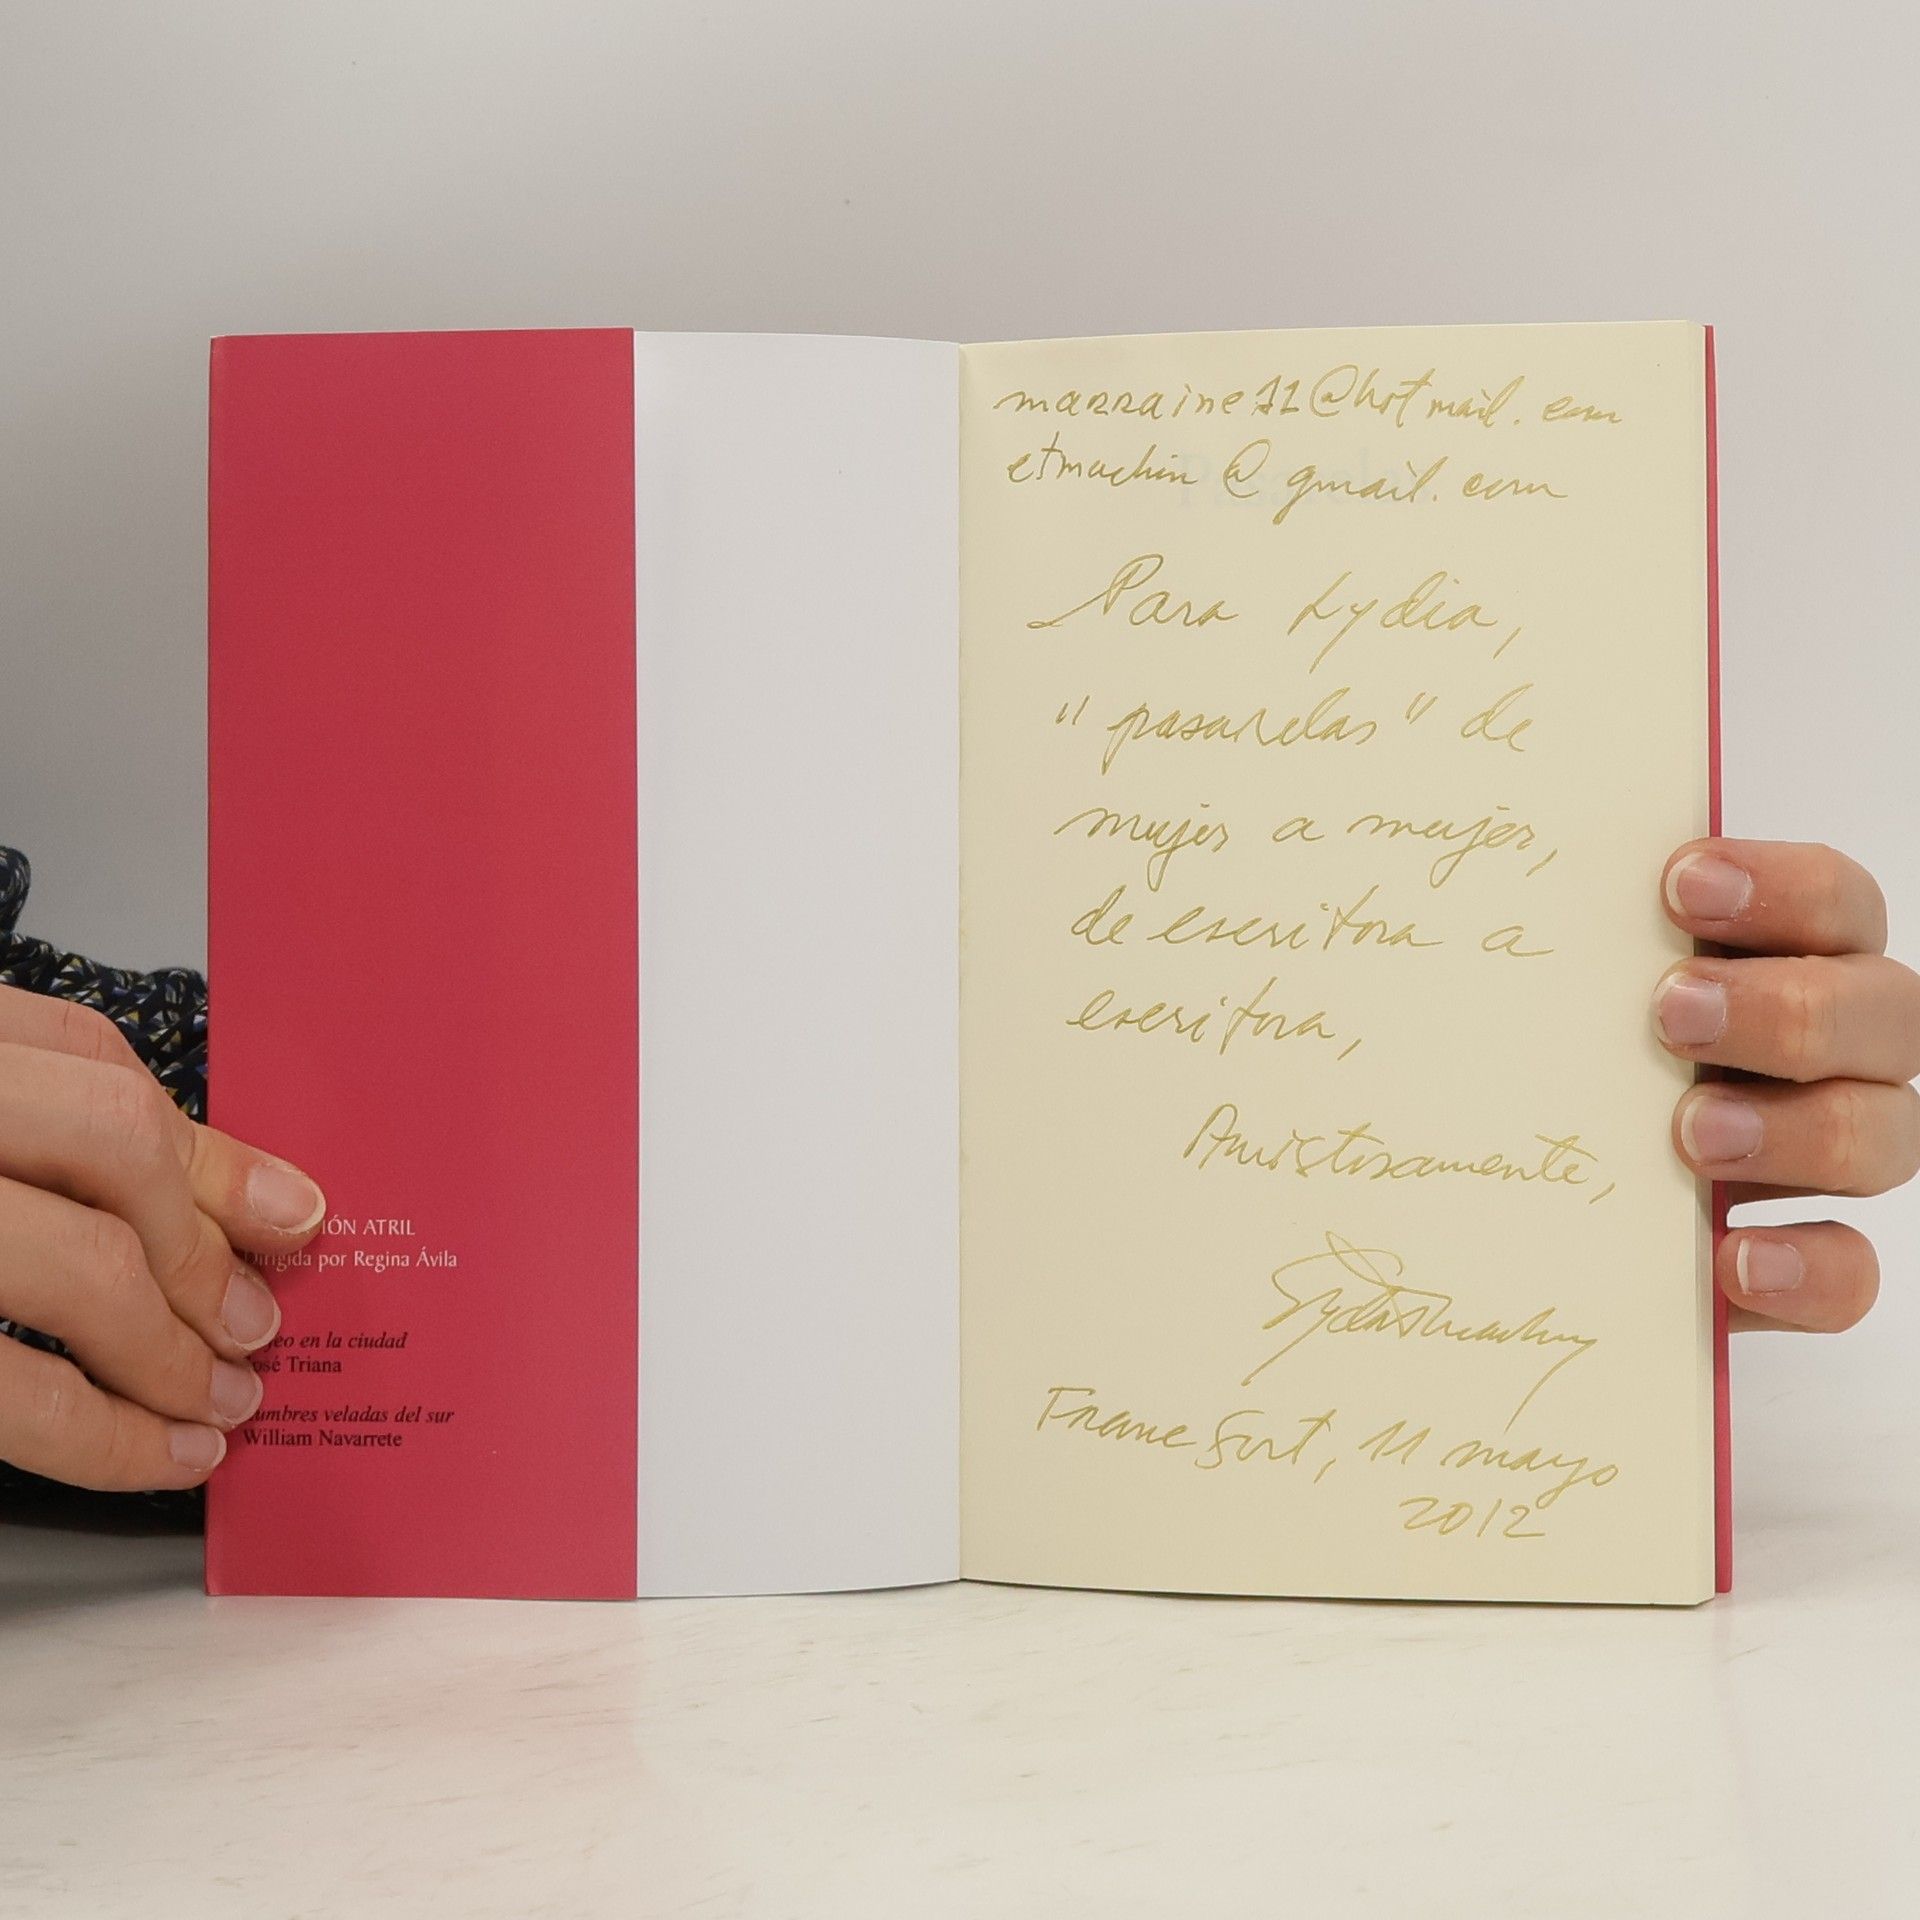 IÓN ATRIL
Dirigida por Regina Ávila
en la ciudad
José Triana
veladas del sur
William Navarrete
marraine11@hotmail.com
etmachin@gmail.com
Para Lydia,
"pasarelas" de
mujer a mujer,
de escritora a
escritora,
Amistosamente,
Francfort, 11 mayo
2012